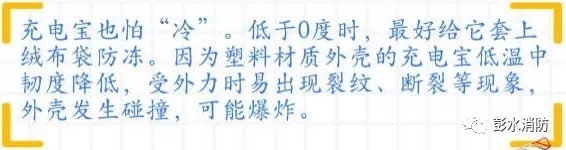 充电宝也怕“冷”。低于0度时，最好给它套上
绒布袋防冻。因为塑料材质外壳的充电宝低温中
韧度降低，受外力时易出现裂纹、断裂等现象，
外壳发生碰撞，可能爆炸。
彭水消防